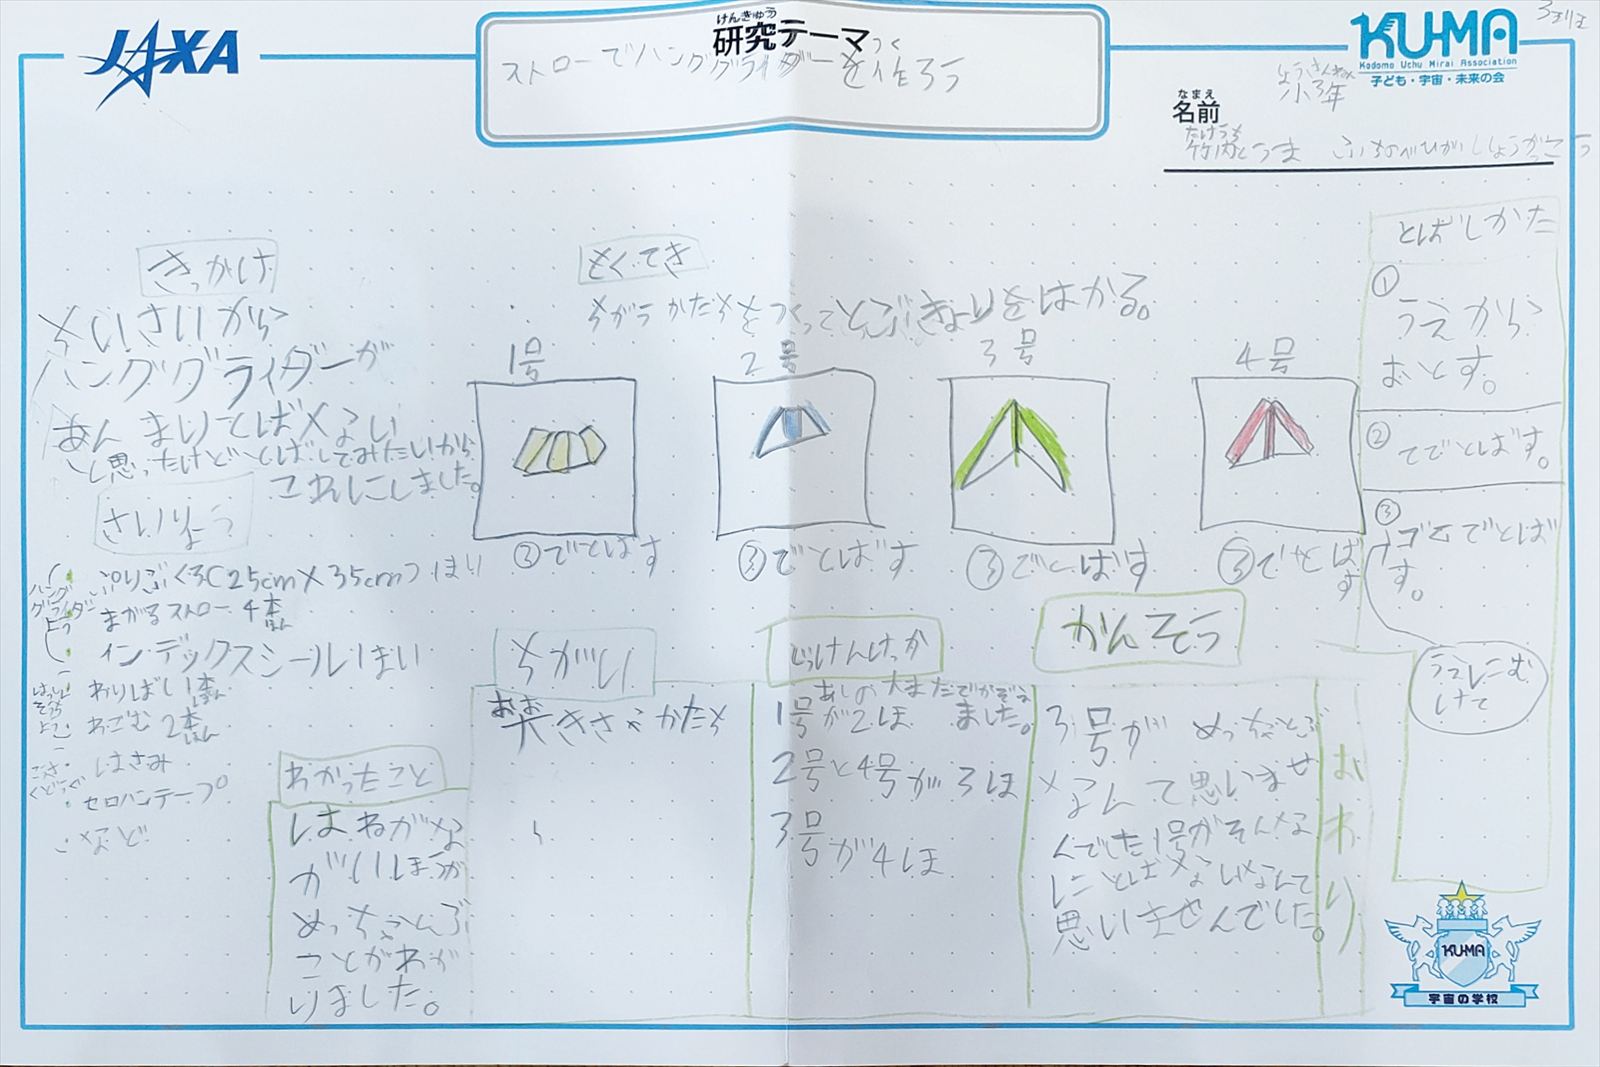 JAXA
けんきゅう
研究テーマ
つく
ストローでハンググライダーを作ろう
KU-MA
Kodomo Uchu Mirai Association
子ども・宇宙・未来の会
小3年
なまえ
名前
たけうち
竹内とうま ふちのべひがししょうがっこう
きっかけ
ちいさいから
ハンググライダーが
あんまりとばなない
と思ったけどとばしてみたいから
これにしました。
さいりょう
ハンググライダーよう
ぷりぶくろ(25cm×35cm)1まい
まがるストロー4本
ほん
インデックスシール1まい
はっしゃそうちよう
わりばし1本
ほん
わごむ2本
ほん
こうさくどうぐ
はさみ
セロハンテープ
など
もくてき
ちがうかたちをつくってとぶきょりをはかる。
1号
2号
3号
4号
③でとばす
③でとばす
③でとばす
③でとばす
とばしかた
①
うえから
おとす。
②
てでとばす。
③
ゴムでとば
す。
うえにむ
けて
わかったこと
はねがな
がいほうが
めっちゃとぶ
ことがわか
りました。
ちがい
おお
大きさやかたち
じっけんけっか
あしの大またでかぞえ
ました。
1号が2ほ
2号と4号が3ほ
3号が4ほ
かんそう
3号がめっちゃとぶ
なんて思いませ
んでした1号がそんな
にとばなないなんて
思いませんでした。
おわり
KU-MA
宇宙の学校